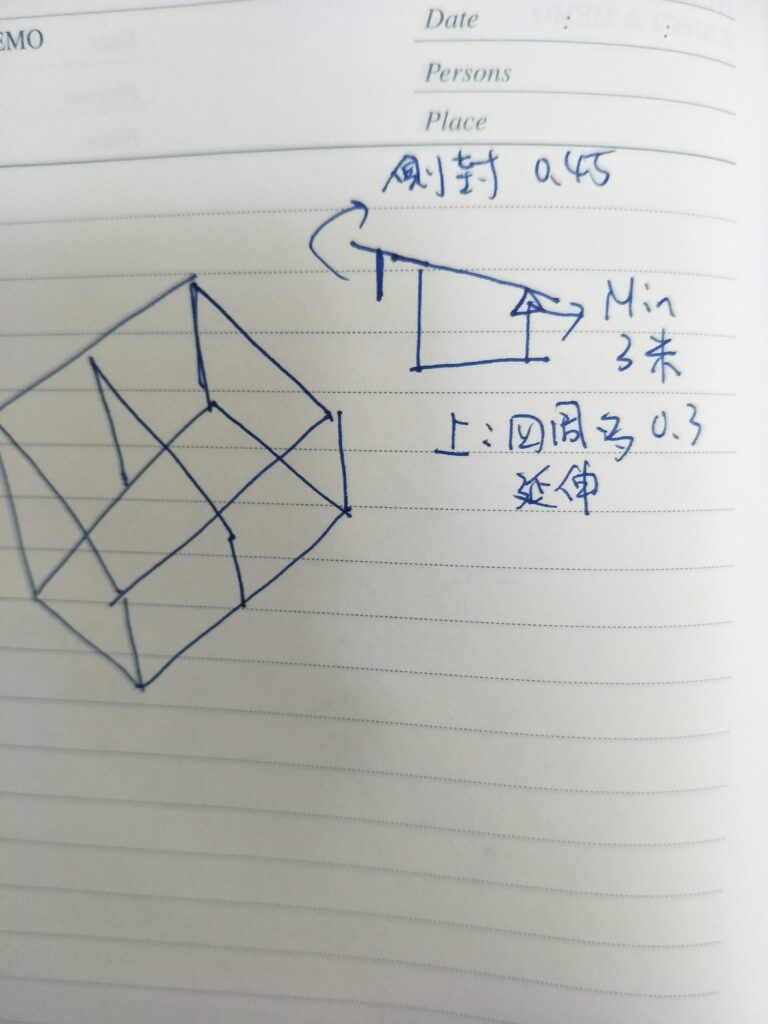 EMO
Date : :
Persons
Place
侧封 0.45
Min
3米
上：四周为 0.3
延伸